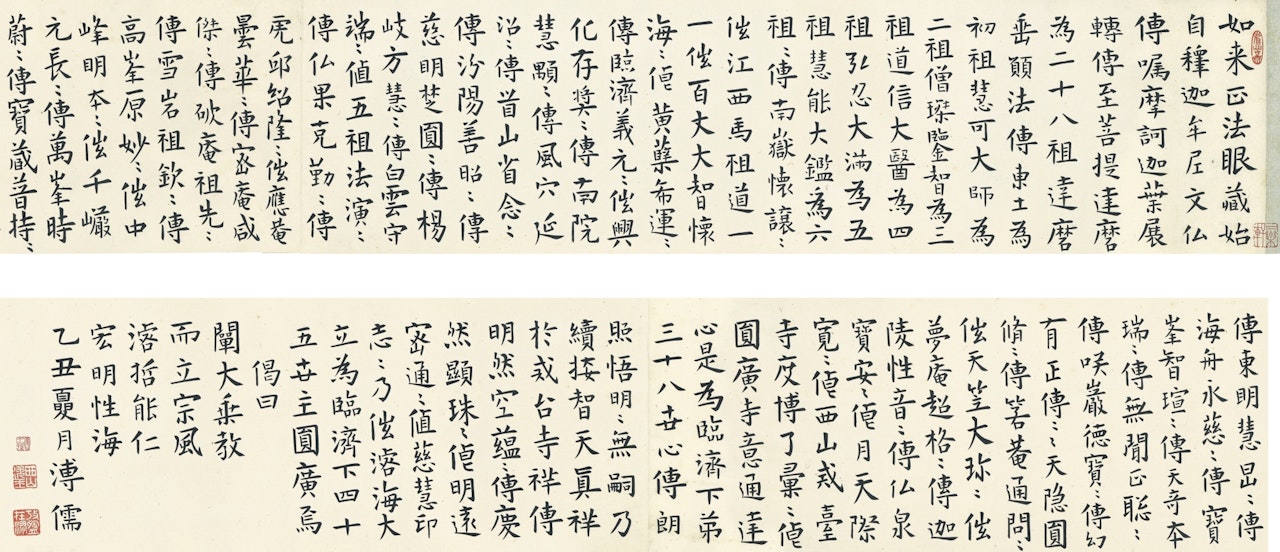 如来正法眼藏始
自釋迦牟尼文仏
傳嘱摩訶迦葉展
轉傳至菩提達磨
為二十八祖達磨
垂法傳東土為
初祖慧可大師為
二祖僧璨鑒智為三
祖道信大醫為四
祖弘忍大滿為五
祖慧能大鑑為六
祖〻傳南嶽懷讓〻
傳江西馬祖道一
一傳百丈大智懷
海〻傳黃蘗希運〻
傳臨濟義元〻傳興
化存奖〻傳南院
慧顒〻傳風穴延
沼〻傳首山省念〻
傳汾陽善昭〻傳
慈明楚圓〻傳楊
岐方慧〻傳白雲守
端〻值五祖法演〻
傳仏果克勤〻傳
虎邱紹隆〻傳應菴
曇華〻傳密庵咸
傑〻傳破庵祖先〻
傳雪岩祖欽〻傳
高峯原妙〻傳中
峰明本〻傳千巖
元長〻傳萬峯時
蔚〻傳寶藏普持〻
傳東明慧昷〻傳
海舟永慈〻傳寶
峯智瑄〻傳天奇本
瑞〻傳無聞正聡〻
傳咲巖德寶〻傳幻
有正傳〻傳天隐圓
脩〻傳箬菴通問〻
傳天笠大珎〻傳
夢庵超格〻傳迦
陵性音〻傳仏泉
寶安〻傳月天際
寬〻傳西山戎臺
寺度博了彙〻傳
圓廣寺意通達
心是為臨濟下弟
三十八世心傳朗
照悟明〻無嗣乃
續接智天真祥
於戎台寺祥傳
明然空蕴〻傳慶
然顯珠〻傳明遠
密通〻值慈慧印
志〻乃傳濬海大
立為臨濟下四十
五世主圓廣焉
偈曰
闡大乘教
而立宗風
濬哲能仁
宏明性海
乙丑夏月溥儒